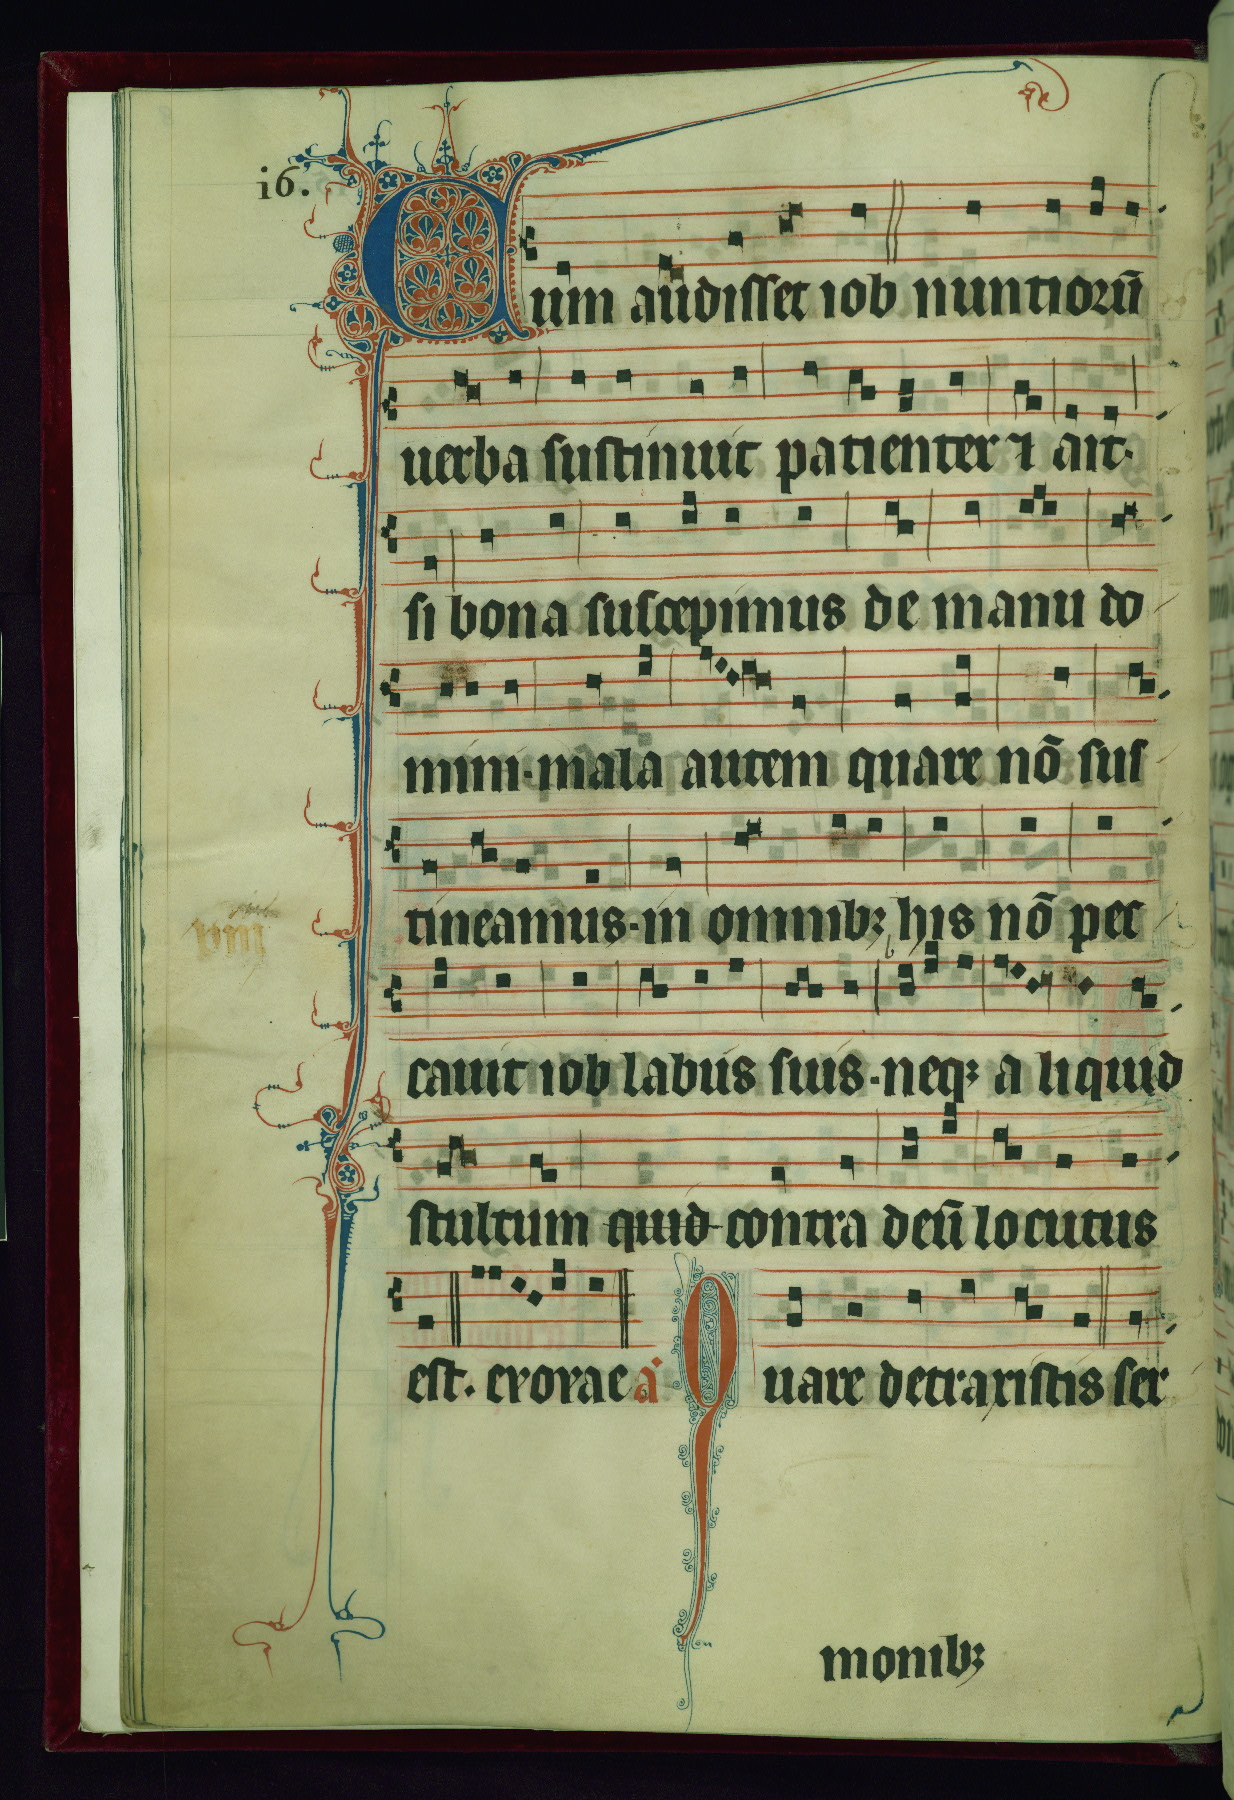 i6.
Cum audisset iob nuntiorū
uerba sustinuit patienter ⁊ ait.
si bona suscepimus de manu do
mini. mala autem quare nō sus
tineamus. in omnibꝫ his nō pec
cauit iob labiis suis. neqꝫ a liquid
stultum quid contra deū locutus
est. evovae a̓ Quare detraxistis ser
monibꝫ